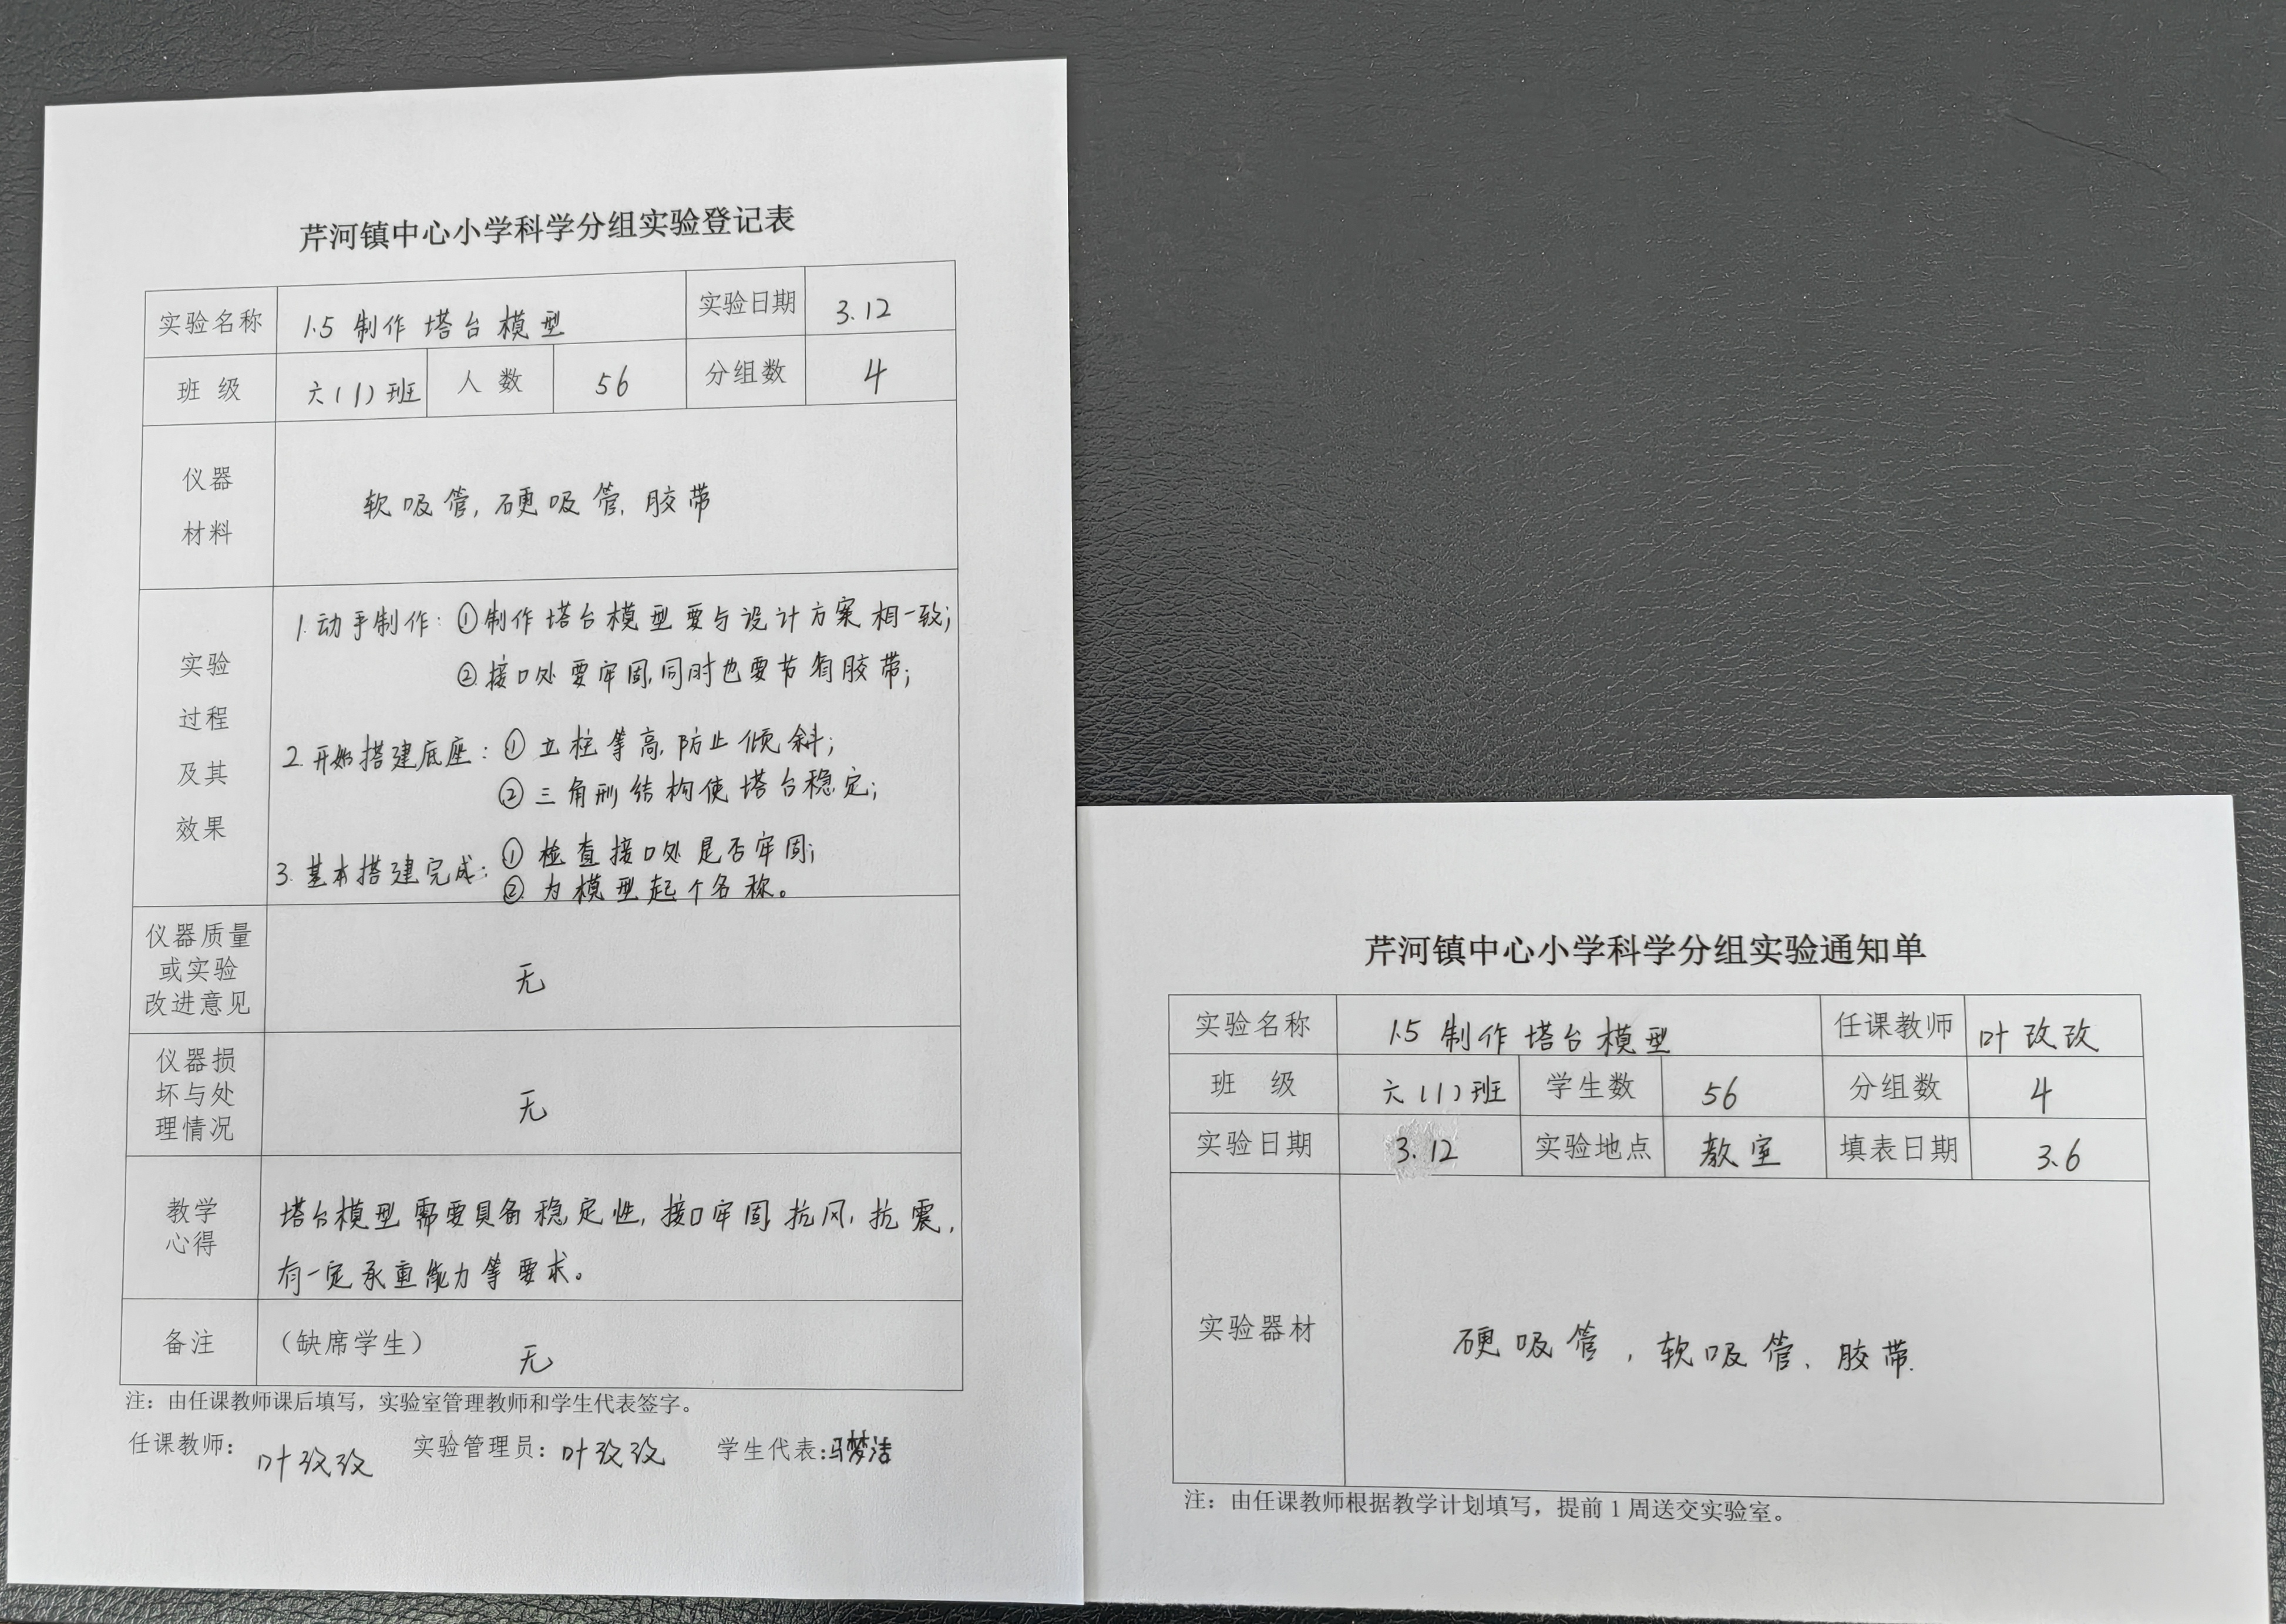 芹河镇中心小学科学分组实验登记表
实验名称 1.5 制作塔台模型 实验日期 3.12
班 级 六(1)班 人 数 56 分组数 4
仪器
材料
软吸管, 硬吸管, 胶带
实验
过程
及其
效果
1.动手制作: ①制作塔台模型要与设计方案相一致;
②接口处要牢固,同时也要节省胶带;
2.开始搭建底座: ①立柱等高,防止倾斜;
②三角形结构使塔台稳定;
3.基本搭建完成: ①检查接口处是否牢固;
②为模型起个名称。
仪器质量
或实验
改进意见
无
仪器损
坏与处
理情况
无
教学
心得
塔台模型需要具备稳定性, 接口牢固, 抗风, 抗震,
有一定承重能力等要求。
备注 (缺席学生) 无
注：由任课教师课后填写，实验室管理教师和学生代表签字。
任课教师: 叶玫玫 实验管理员: 叶玫玫 学生代表:马梦洁
芹河镇中心小学科学分组实验通知单
实验名称 1.5 制作塔台模型 任课教师 叶玫玫
班 级 六(1)班 学生数 56 分组数 4
实验日期 3.12 实验地点 教室 填表日期 3.6
实验器材 硬吸管, 软吸管、胶带.
注：由任课教师根据教学计划填写，提前1周送交实验室。